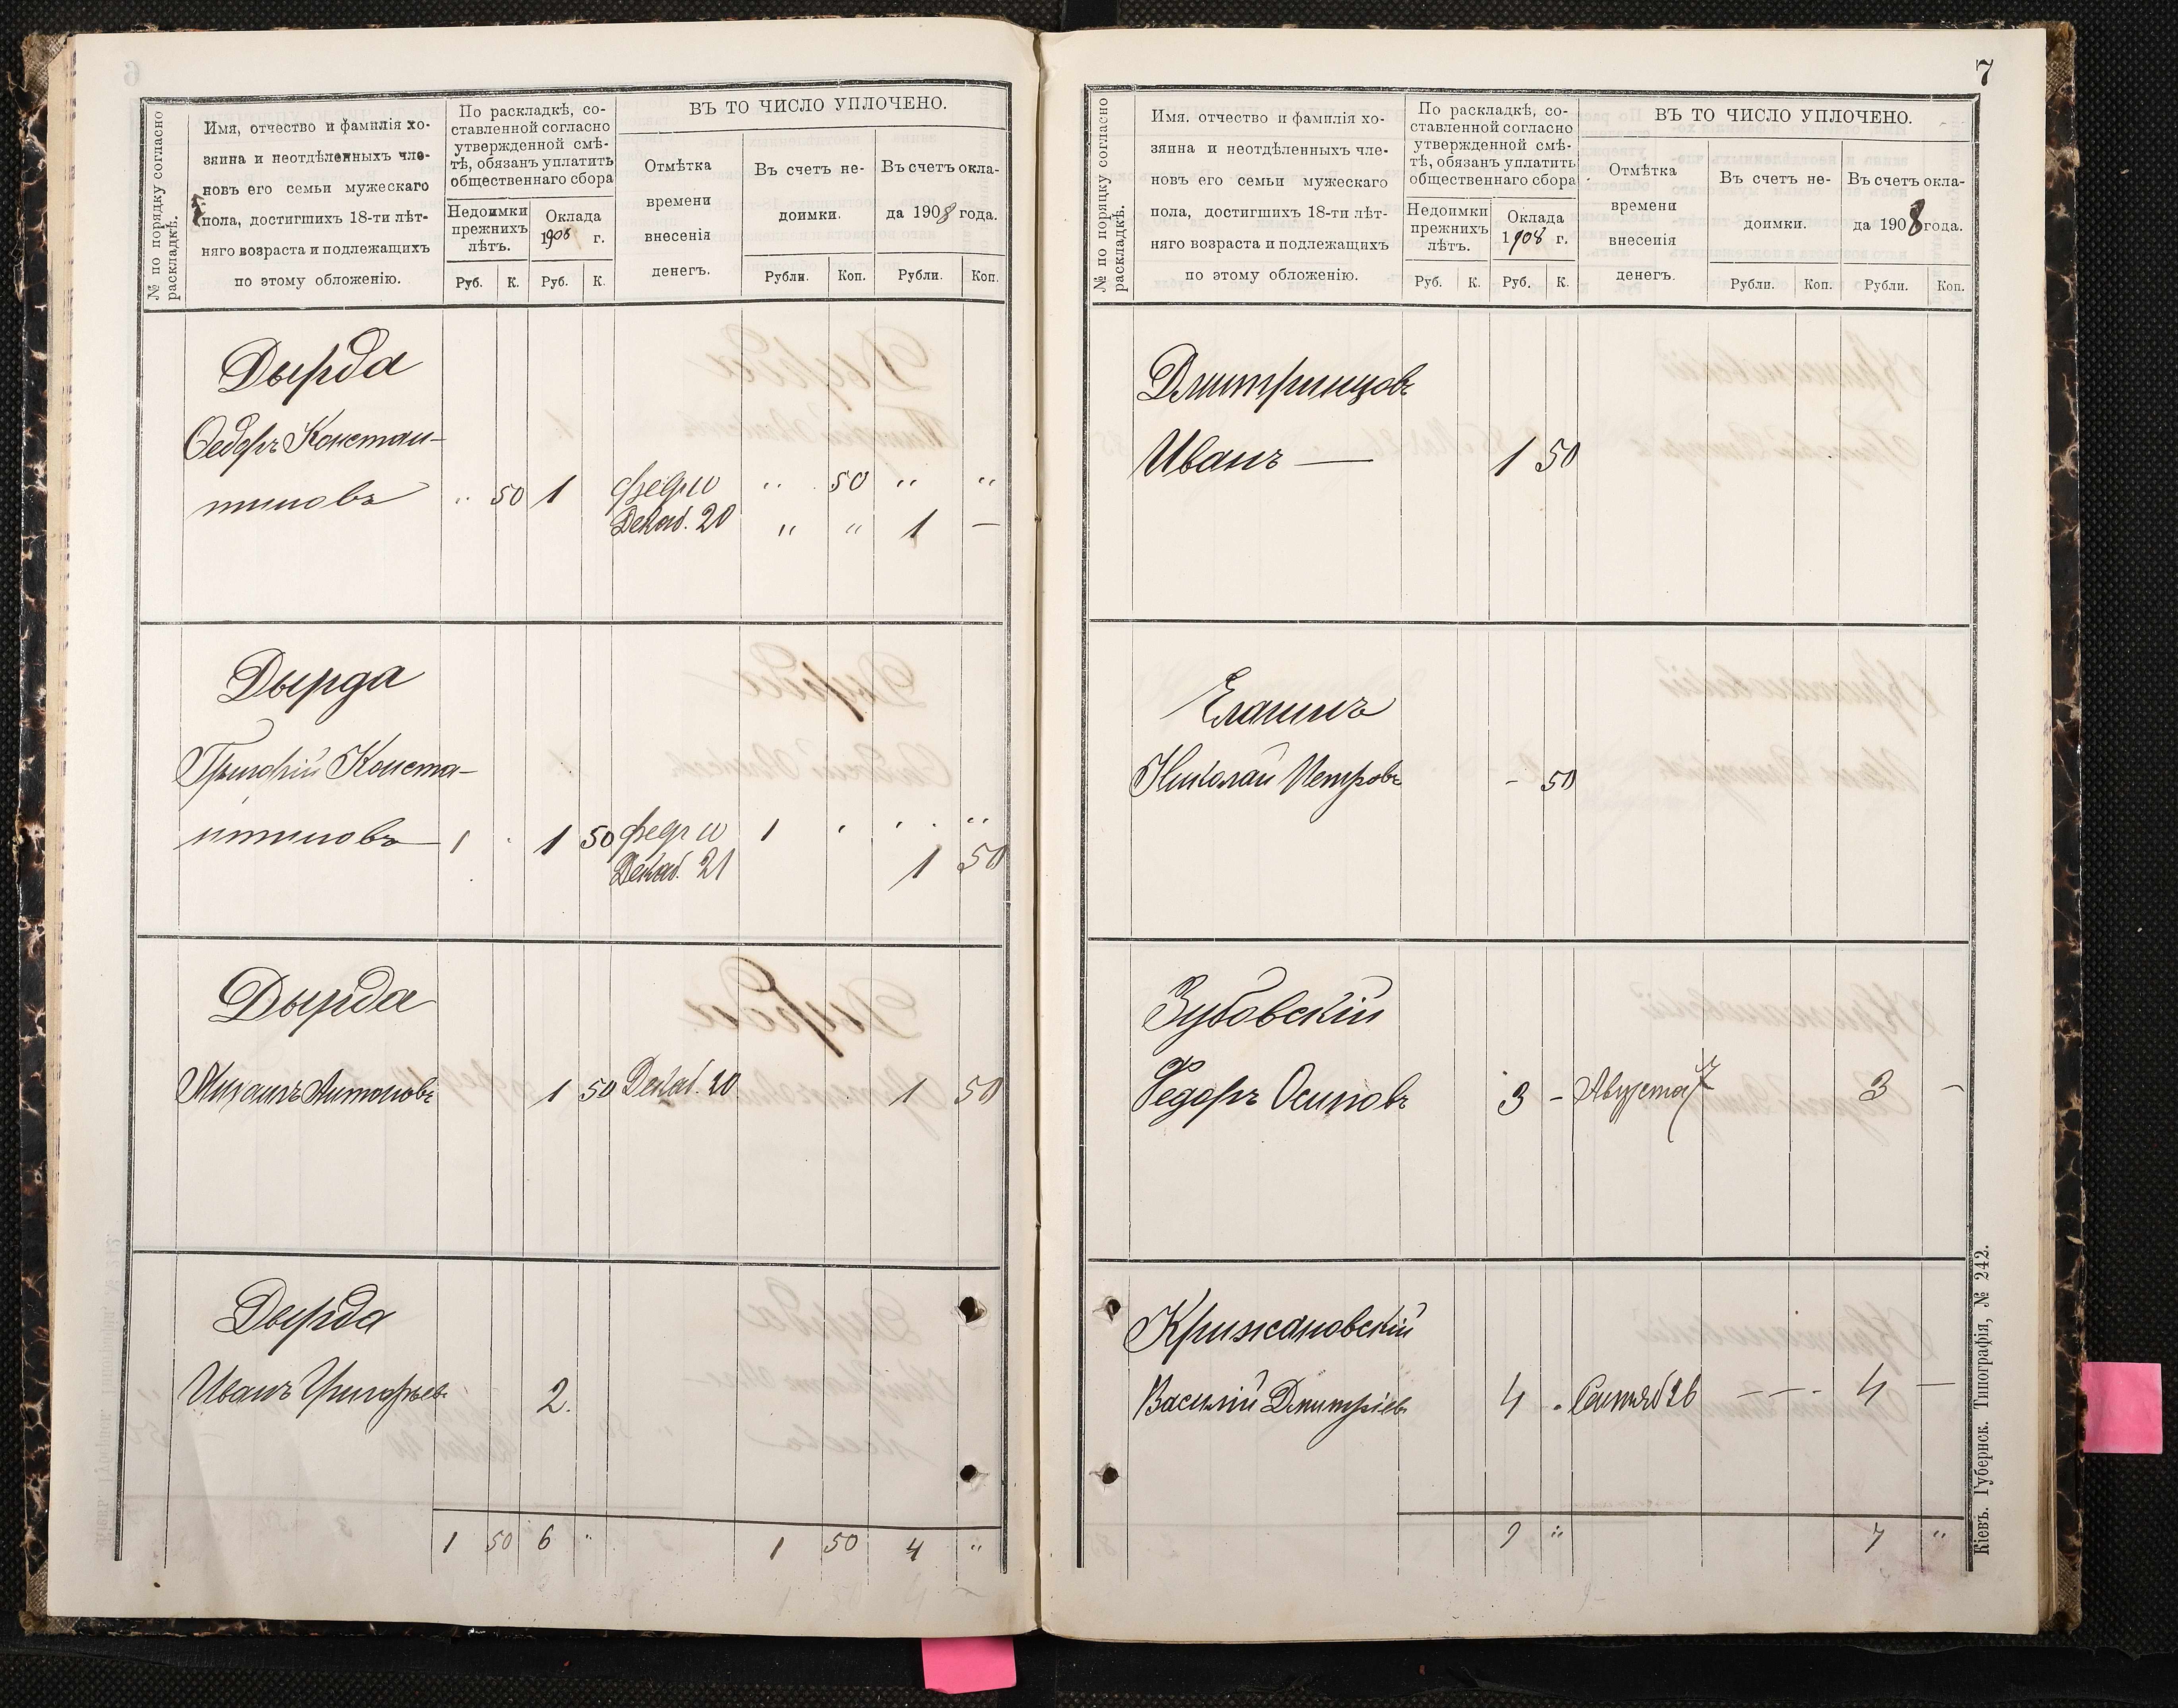 № по порядку согласно
раскладкѣ.
Имя, отчество и фамилія хо-
зяина и неотдѣленныхъ чле-
новъ его семьи мужескаго
пола, достигшихъ 18-ти лѣт-
няго возраста и подлежащихъ
по этому обложенію.
По раскладкѣ, со-
ставленной согласно
утвержденной смѣ-
тѣ, обязанъ уплатить
общественнаго сбора
Недоимки
прежнихъ
лѣтъ.
Оклада
1908 г.
Руб. К. Руб. К.
ВЪ ТО ЧИСЛО УПЛОЧЕНО.
Отмѣтка
времени
внесенія
денегъ.
Въ счетъ не-
доимки.
Въ счетъ окла-
да 1908 года.
Рубли. Коп. Рубли. Коп.
Дырда
Ѳедоръ Констан-
тиновъ " 50 1 февр 10 " 50 " "
Декаб. 20 " " 1 —
Дырда
Григорій Конста-
нтиновъ 1 1 50 февр 10 1 "
Декаб. 21 1 50
Дырда
Михаилъ Антоновъ 1 50 Декаб. 20 1 50
Дырда
Иванъ Григорьев 2.
1 50 6 " 1 50 4 "
7
№ по порядку согласно
раскладкѣ.
Имя, отчество и фамилія хо-
зяина и неотдѣленныхъ чле-
новъ его семьи мужескаго
пола, достигшихъ 18-ти лѣт-
няго возраста и подлежащихъ
по этому обложенію.
По раскладкѣ, со-
ставленной согласно
утвержденной смѣ-
тѣ, обязанъ уплатить
общественнаго сбора
Недоимки
прежнихъ
лѣтъ.
Оклада
1908 г.
Руб. К. Руб. К.
ВЪ ТО ЧИСЛО УПЛОЧЕНО.
Отмѣтка
времени
внесенія
денегъ.
Въ счетъ не-
доимки.
Въ счетъ окла-
да 1908 года.
Рубли. Коп. Рубли. Коп.
Дмитринцовъ
Иванъ — 1 50
Еланинъ
Николай Петровъ - 50
Зубовскій
Федоръ Осиповъ 3 - Августа 17 3 —
Крижановскій
Василій Дмитріев 4 - Сентяб 26 — — - 4 —
9 " 7 "
Кіевъ. Губернск. Типографія, № 242.